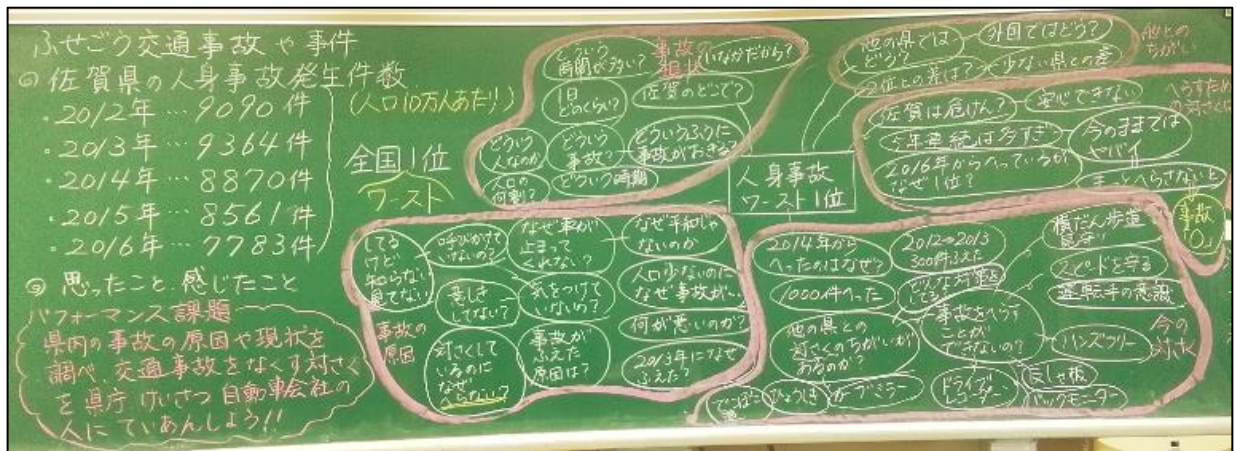 ふせごう交通事故や事件
◎佐賀県の人身事故発生件数
・2012年…9090件
・2013年…9364件
・2014年…8870件
・2015年…8561件
・2016年…7783件
(人口10万人あたり)
全国1位
ワースト
◎思ったこと、感じたこと
パフォーマンス課題
県内の事故の原因や現状を
調べ、交通事故をなくす対さく
を県庁、けいさつ、自動車会社の
人にていあんしよう!!
事故の
現状
どういう
時間が多い?
いなかだから?
1日
どのくらい?
佐賀のどこで?
どういう
人なのか
どういう
事故?
どういうふうに
事故がおきる?
人口の
何割?
どういう時期
人身事故
ワースト1位
他の県では
どう?
外国ではどう?
2位との差は?
少ない県との差
他との
ちがい
へらすため
の対さく
佐賀は危けん?
安心できない
5年連続は多すぎ
今のままでは
ヤバイ
2016年からへっているが
なぜ1位?
もっとへらさないと
事故
「0」
事故の
原因
してる
けど
知らない
見てない
呼びかけて
いないの?
なぜ車が
止まって
くれない?
なぜ平和じゃ
ないのか
意しき
してない?
気をつけて
いないの?
人口少ないのに
なぜ事故が…
対さくして
いるのに
なぜ
へらない?
事故が
ふえた
原因は?
何が悪いのか?
2013年になぜ
ふえた?
2014年から
へったのはなぜ?
2012→2013
300件ふえた
1000件へった
どんな対策を
してる?
他の県との
対さくのちがいが
あるのか?
事故をへらす
ことが
できないの?
横だん歩道
見守り
スピードを守る
運転手の意識
ハンズフリー
今の
対さく
ひょうしき
カーブミラー
ドライブ
レコーダー
バックモニター